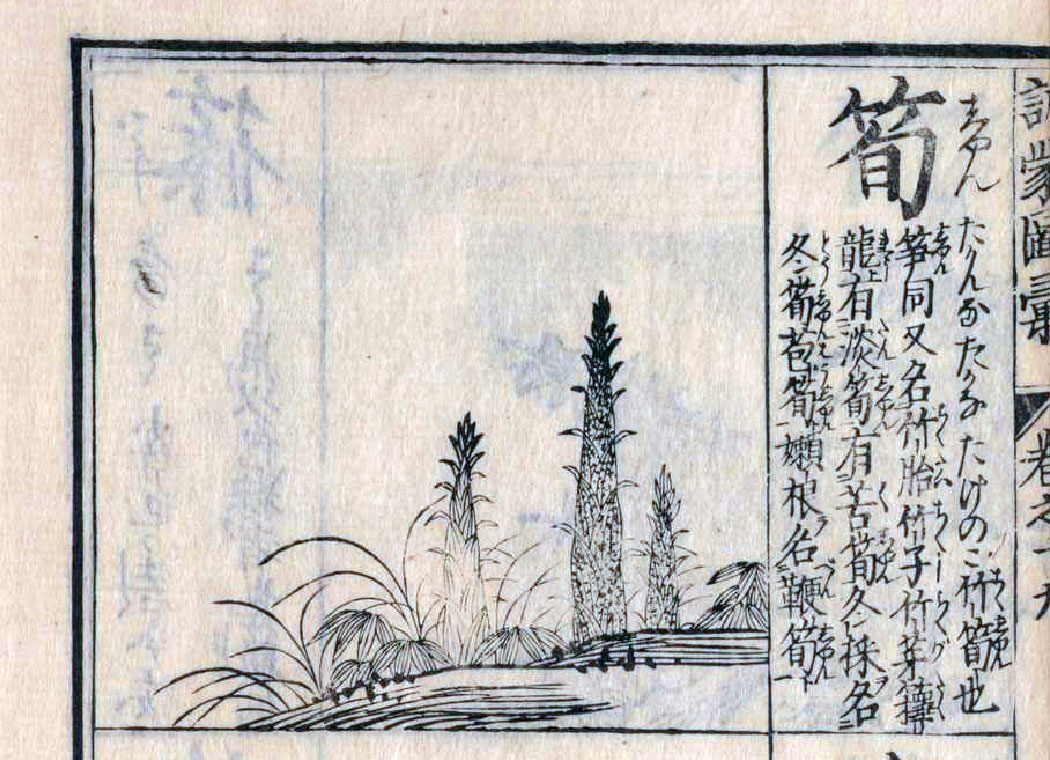 訓蒙圖彙 卷之十九
筍
しゆん
たかんな たかな たけのこ 竹筍也
筍同又名竹胎竹子竹芽籜
龍有淡筍有苦筍冬採名
冬筍苞筍嬾根名鞭筍